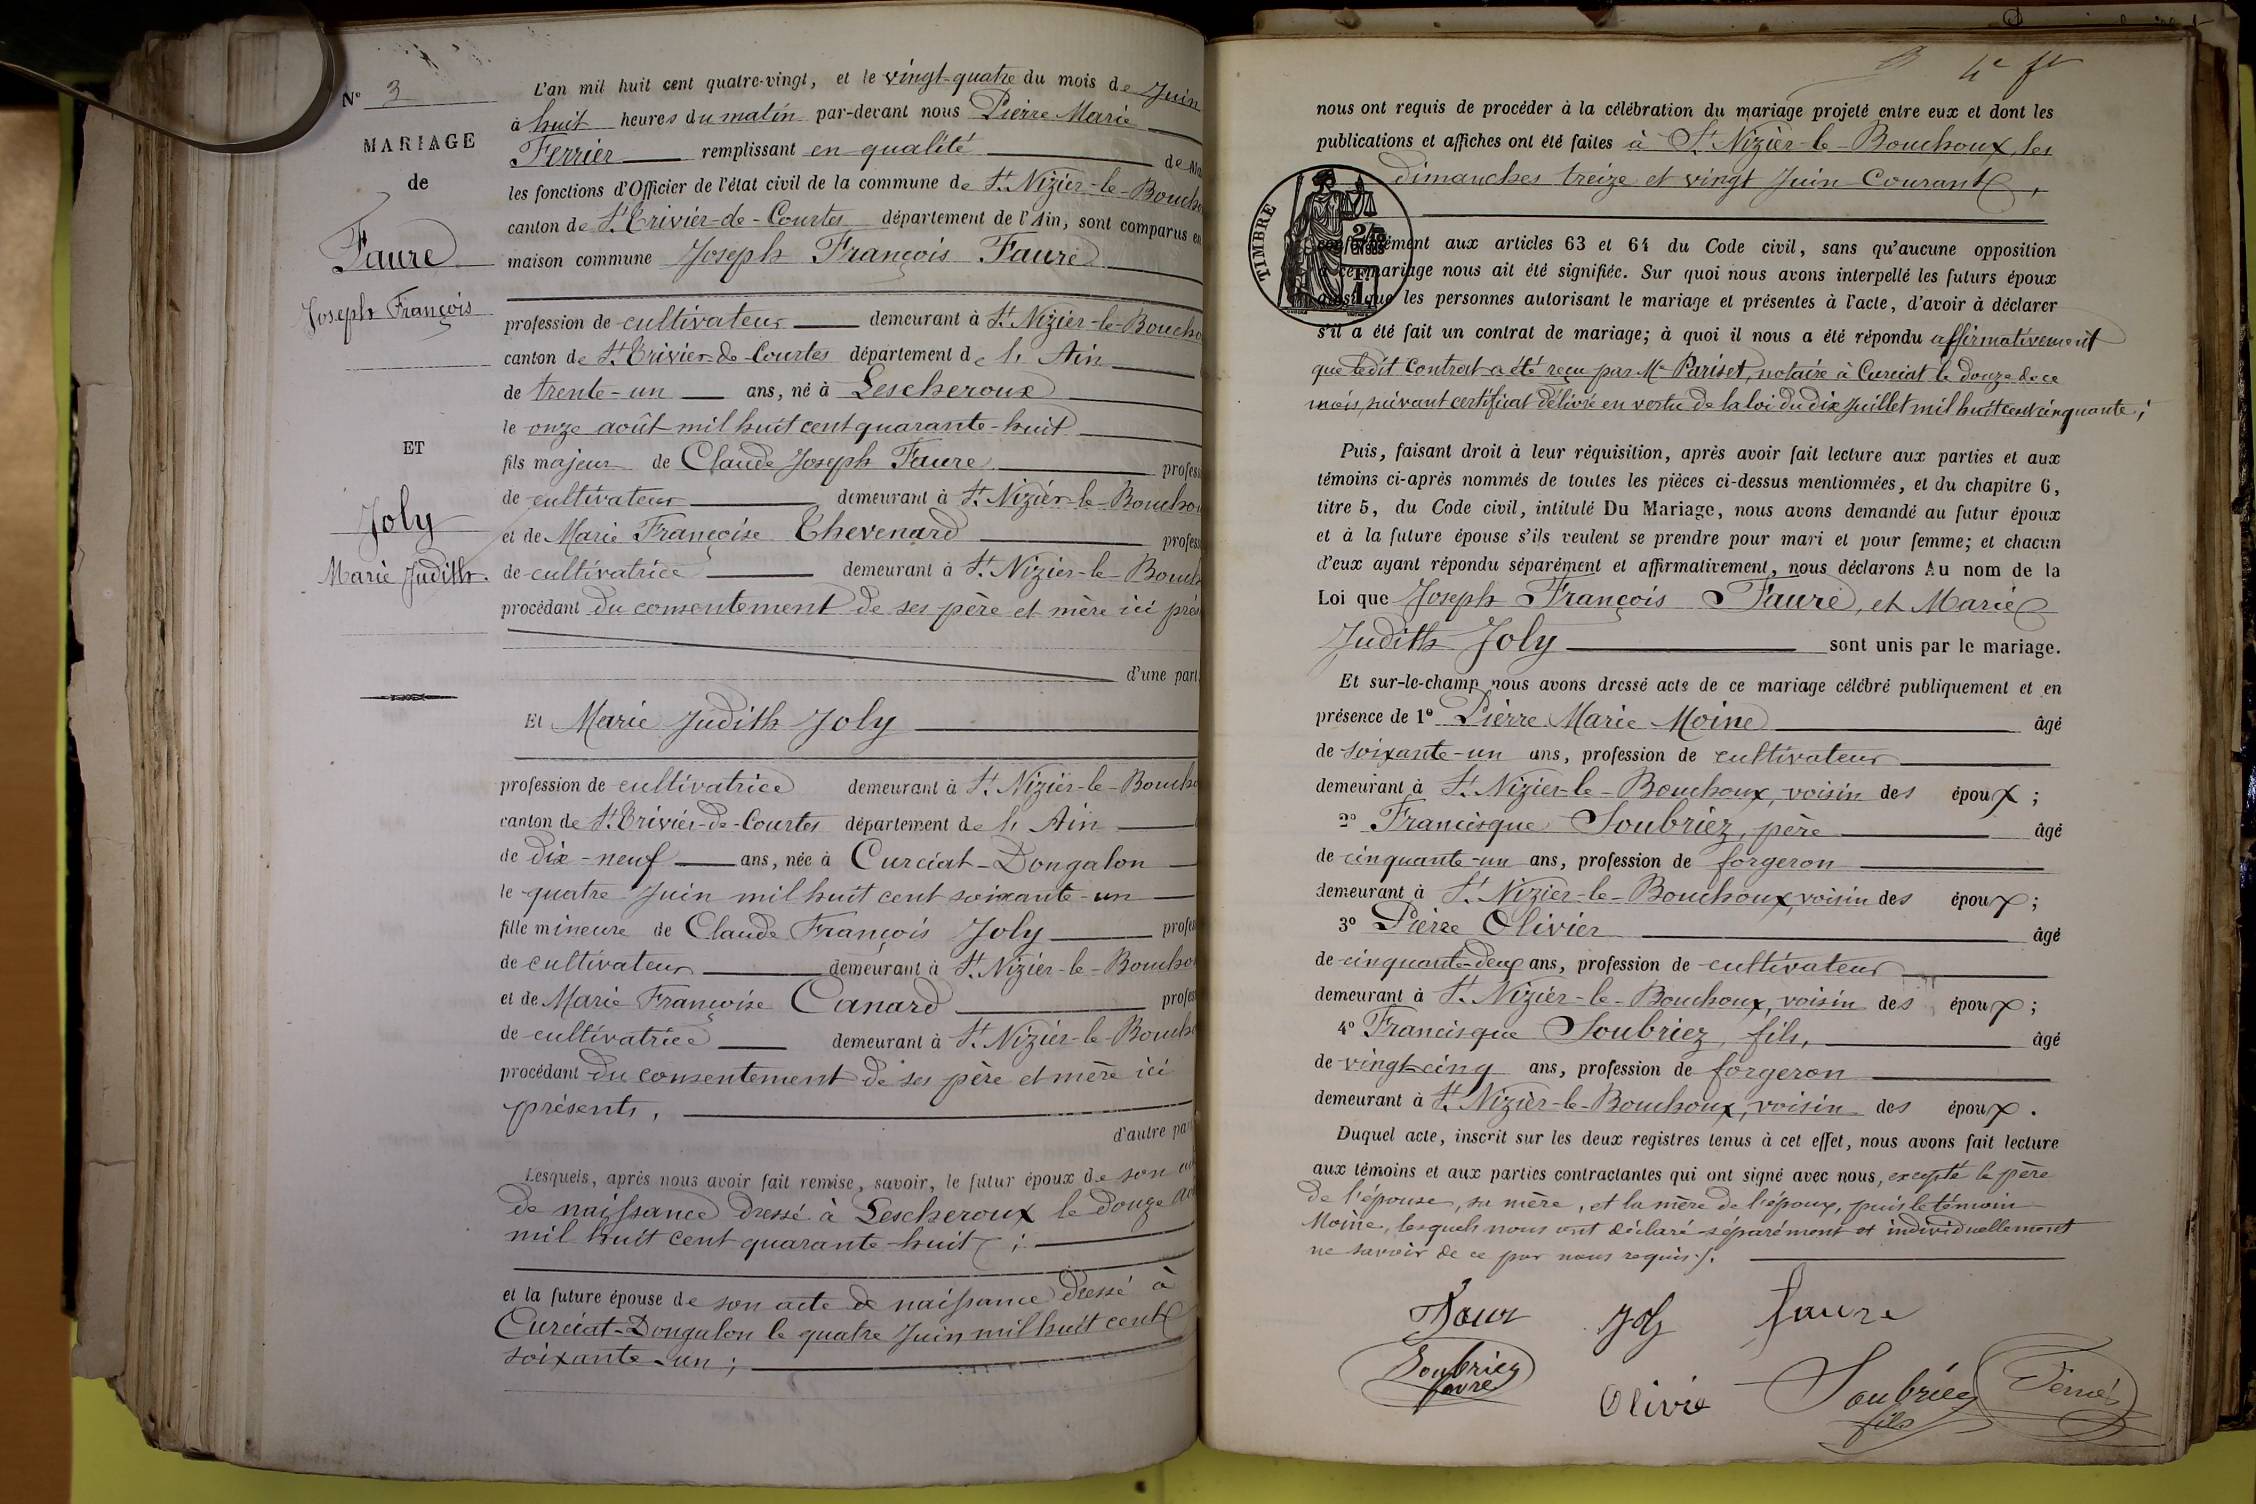 N° 3
MARIAGE
de
Faure
Joseph François
ET
Joly
Marie Judith.
L'an mil huit cent quatre-vingt, et le vingt-quatre du mois de Juin
à huit heures du matin par-devant nous Pierre Marie
Ferrier remplissant en qualité de
les fonctions d'Officier de l'état civil de la commune de St. Nizier-le-Boucho
canton de St. Trivier-de-Courtes département de l'Ain, sont comparus en
maison commune Joseph François Faure
profession de cultivateur demeurant à St. Nizier-le-Boucho
canton de St. Trivier-de-Courtes département de l'Ain
de trente-un ans, né à Lescheroux
le onze août mil huit cent quarante-huit
fils majeur de Claude Joseph Faure profess
de cultivateur demeurant à St. Nizier-le-Bouchou
et de Marie Françoise Thevenard profess
de cultivatrice demeurant à St. Nizier-le-Bouch
procédant du consentement de ses père et mère ici prés
d'une part.
Et Marie Judith Joly
profession de cultivatrice demeurant à St. Nizier-le-Boucho
canton de St. Trivier-de-Courtes département de l'Ain
de dix-neuf ans, née à Curciat-Dongalon
le quatre Juin mil huit cent soixante-un
fille mineure de Claude François Joly profes
de cultivateur demeurant à St. Nizier-le-Boucho
et de Marie Françoise Canard profes
de cultivatrice demeurant à St. Nizier-le-Boucho
procédant du consentement de ses père et mère ici
présents,
d'autre part
Lesquels, après nous avoir fait remise, savoir, le futur époux de son
de naissance dressé à Lescheroux le douze Aoû
mil huit cent quarante-huit ;
et la future épouse de son acte de naissance dressé à
Curciat-Dongalon le quatre Juin mil huit cent
soixante-un ;
nous ont requis de procéder à la célébration du mariage projeté entre eux et dont les
publications et affiches ont été faites à St. Nizier-le-Bouchoux, les
dimanches treize et vingt Juin Courant,
TIMBRE
conformément aux articles 63 et 64 du Code civil, sans qu'aucune opposition
à ce mariage nous ait été signifiée. Sur quoi nous avons interpellé les futurs époux
ainsi que les personnes autorisant le mariage et présentes à l'acte, d'avoir à déclarer
s'il a été fait un contrat de mariage; à quoi il nous a été répondu affirmativement
que ledit Contrat a été reçu par Me. Pariset, notaire à Curciat le douze de ce
mois, suivant certificat délivré en vertu de la loi du dix Juillet mil huit cent cinquante ;
Puis, faisant droit à leur réquisition, après avoir fait lecture aux parties et aux
témoins ci-après nommés de toutes les pièces ci-dessus mentionnées, et du chapitre 6,
titre 5, du Code civil, intitulé Du Mariage, nous avons demandé au futur époux
et à la future épouse s'ils veulent se prendre pour mari et pour femme; et chacun
d'eux ayant répondu séparément et affirmativement, nous déclarons Au nom de la
Loi que Joseph François Faure, et Marie
Judith Joly sont unis par le mariage.
Et sur-le-champ nous avons dressé acte de ce mariage célébré publiquement et en
présence de 1° Pierre Marie Moine âgé
de soixante-un ans, profession de cultivateur
demeurant à St. Nizier-le-Bouchoux, voisin des époux ;
2° Francisque Soubriez, père âgé
de cinquante-un ans, profession de forgeron
demeurant à St. Nizier-le-Bouchoux, voisin des époux ;
3° Pierre Olivier âgé
de cinquante-deux ans, profession de cultivateur
demeurant à St. Nizier-le-Bouchoux, voisin des époux ;
4° Francisque Soubriez, fils, âgé
de vingt-cinq ans, profession de forgeron
demeurant à St. Nizier-le-Bouchoux, voisin des époux.
Duquel acte, inscrit sur les deux registres tenus à cet effet, nous avons fait lecture
aux témoins et aux parties contractantes qui ont signé avec nous, excepté le père
de l'épouse, sa mère, et la mère de l'époux, puis le témoin
Moine, lesquels nous ont déclaré séparément et individuellement
ne savoir de ce par nous requis./.
Joly faure
Soubriez
Olivié Soubriez
fils